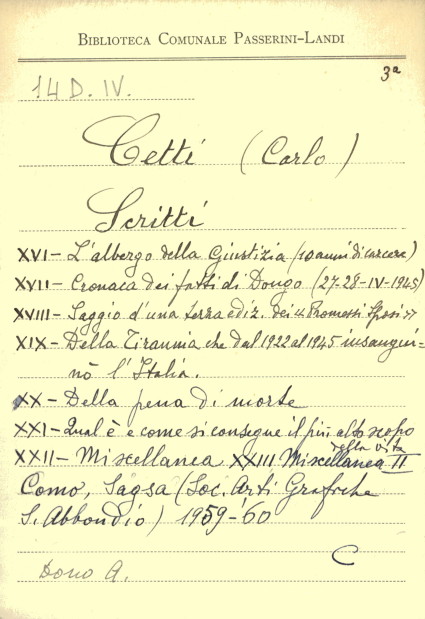 BIBLIOTECA COMUNALE PASSERINI-LANDI
3ª
14 D. IV.
Cetti (Carlo)
Scritti
XVI - L'albergo della Giustizia (10 anni di carcere)
XVII - Cronaca dei fatti di Dongo (27-28-IV-1945)
XVIII - Saggio d'una terza ediz. dei "Promessi Sposi"
XIX - Della Tirannia che dal 1922 al 1945 insangui-
nò l'Italia.
XX - Della pena di morte
XXI - Qual è e come si consegue il più alto scopo
della vita
XXII - Miscellanea XXIII Miscellanea II
Como, Sagsa (Soc. Arti Grafiche
S. Abbondio) 1959-'60
C
Dono A.